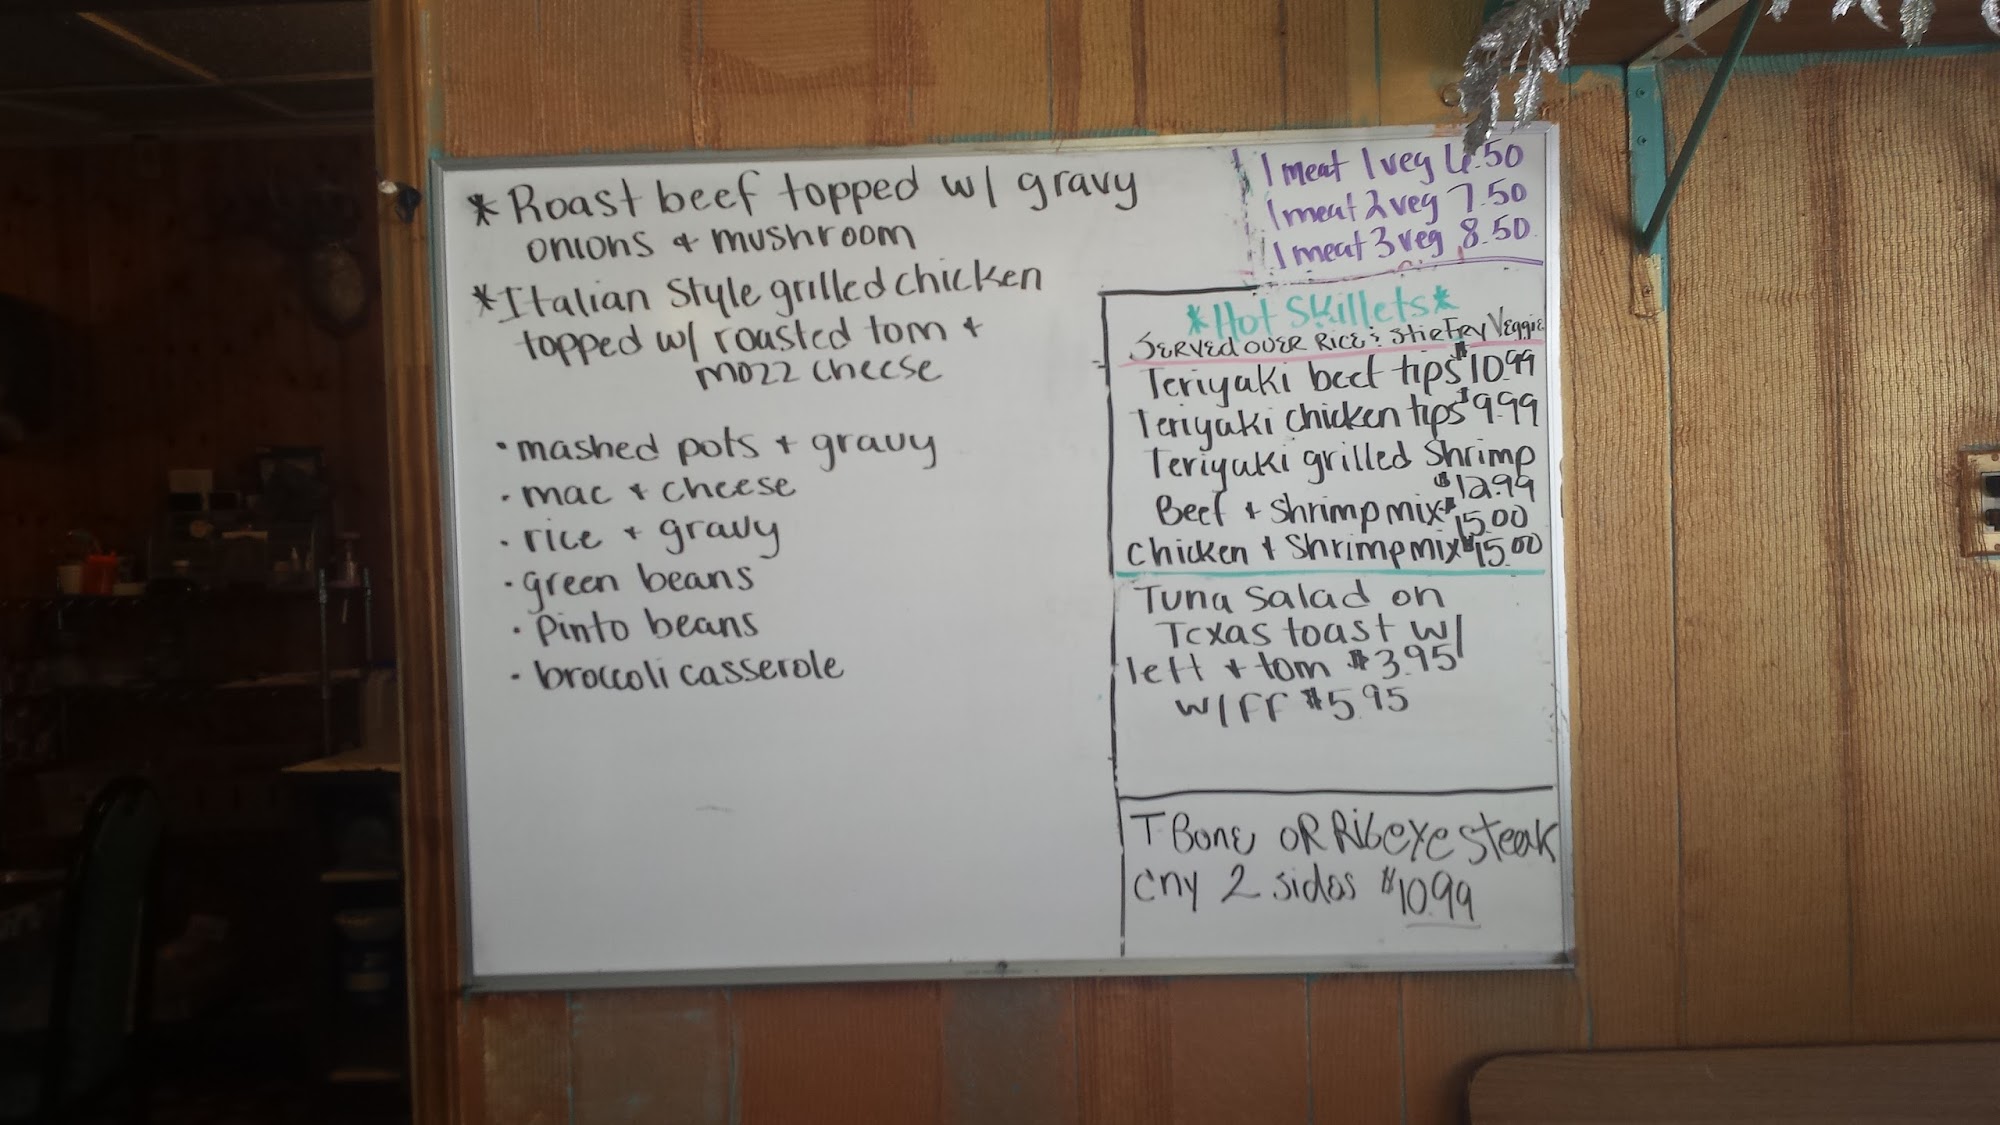 *Roast beef topped w/ gravy
onions + mushroom
*Italian Style grilled chicken
topped w/ roasted tom +
mozz cheese
• mashed pots + gravy
• mac + cheese
• rice + gravy
• green beans
• pinto beans
• broccoli casserole
1 meat 1 veg 6.50
1 meat 2 veg 7.50
1 meat 3 veg 8.50
*Hot Skillets*
SERVED OVER RICE & StiR FRY Veggie
Teriyaki beef tips $10.99
Teriyaki chicken tips $9.99
Teriyaki grilled Shrimp
$12.99
Beef + Shrimp mix $15.00
Chicken + Shrimp mix $15.00
Tuna Salad on
Texas toast w/
lett + tom $3.95
w/ FF $5.95
T Bone OR Ribeye steak
any 2 sides $10.99